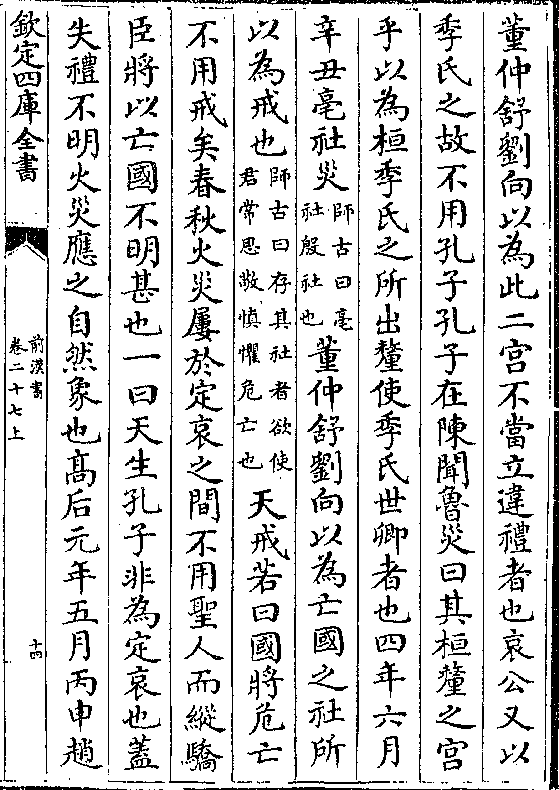 董仲舒劉向以為此二宫不當立違禮者也哀公又以
季氏之故不用孔子孔子在陳聞魯災曰其桓釐之宫
乎以為桓季氏之所出釐使季氏世卿者也四年六月
辛丑亳社災師古曰亳社殷社也董仲舒劉向以為亡國之社所
以為戒也師古曰存其社者欲使君常思敬慎懼危亡也天戒若曰國將危亡
不用戒矣春秋火災屢於定哀之間不用聖人而縱驕
臣將以亡國不明甚也一曰天生孔子非為定哀也蓋
失禮不明火災應之自然象也髙后元年五月丙申趙
欽定四庫全書
前漢書
卷二十七上
十四